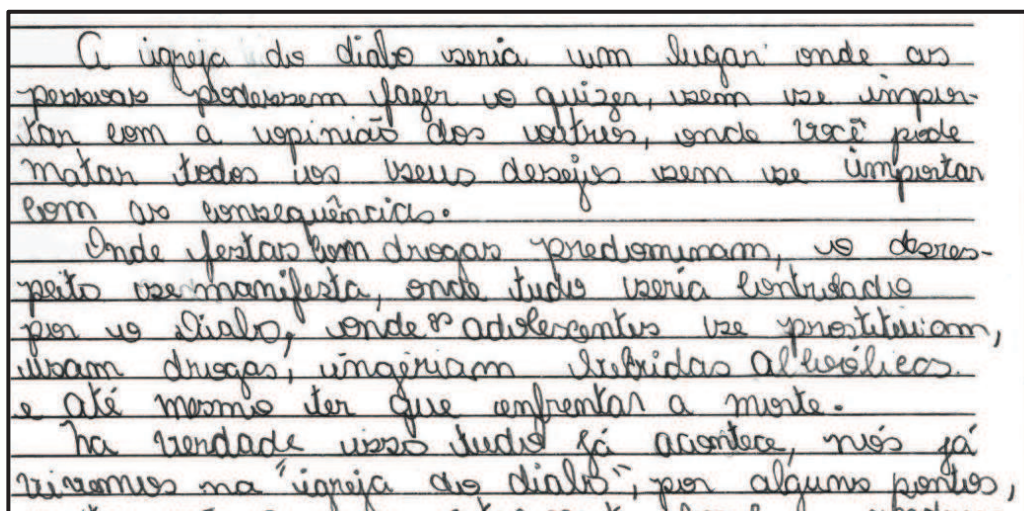 A igreja do diabo seria um lugar onde as
pessoas podessem fazer o quizer, sem se impor-
tar com a opinião dos outros, onde você pode
matar todos os seus desejos sem se importar
com as consequências.
Onde festas com drogas predominam, o desres-
peito se manifesta, onde tudo seria controlado
por o Diabo, onde os adolescentes se prostituiam,
usam drogas, ingeriam bebidas alcoólicas
e até mesmo ter que enfrentar a morte.
Na verdade isso tudo já acontece, nós já
vivemos na "igreja do diabo", por alguns pontos,